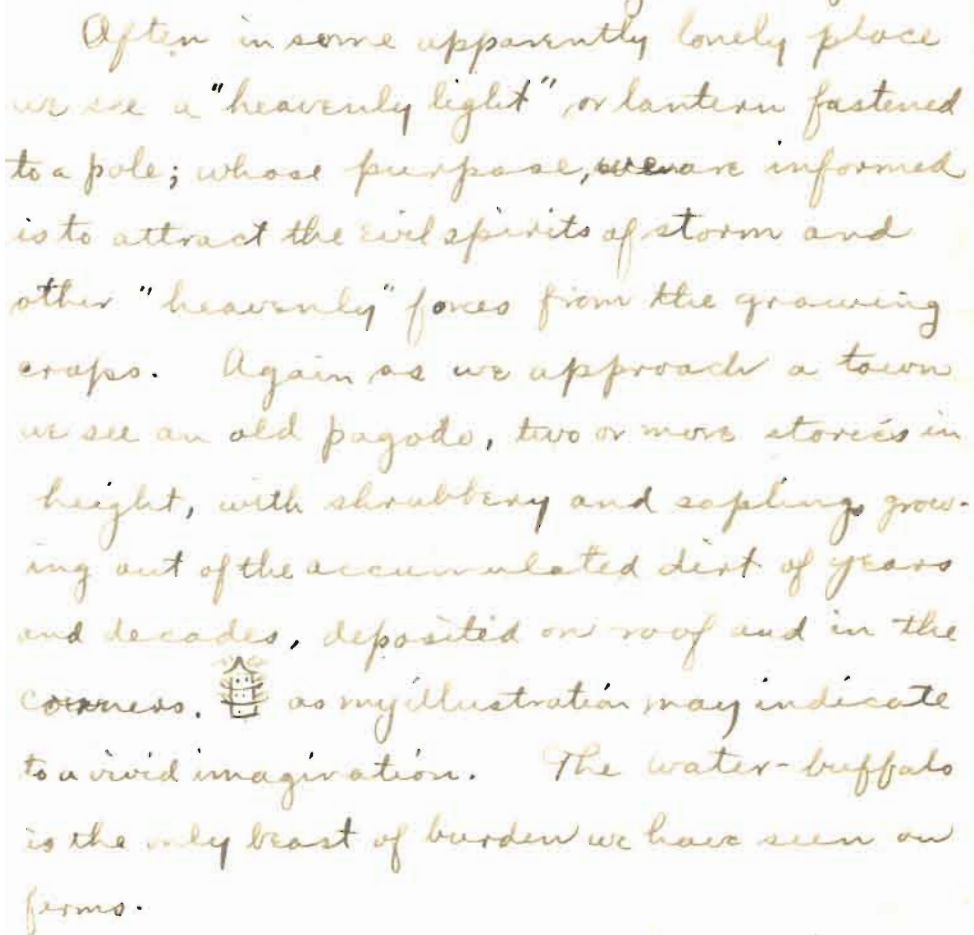 Often in some apparently lonely place
we see a "heavenly light", or lantern fastened
to a pole; whose purpose, we are informed
is to attract the evil spirits of storm and
other "heavenly" forces from the growing
crops. Again as we approach a town
we see an old pagoda, two or more stories in
height, with shrubbery and saplings grow-
ing out of the accumulated dirt of years
and decades, deposited on roof and in the
corners. as my illustration may indicate
to a vivid imagination. The water-buffalo
is the only beast of burden we have seen on
farms.